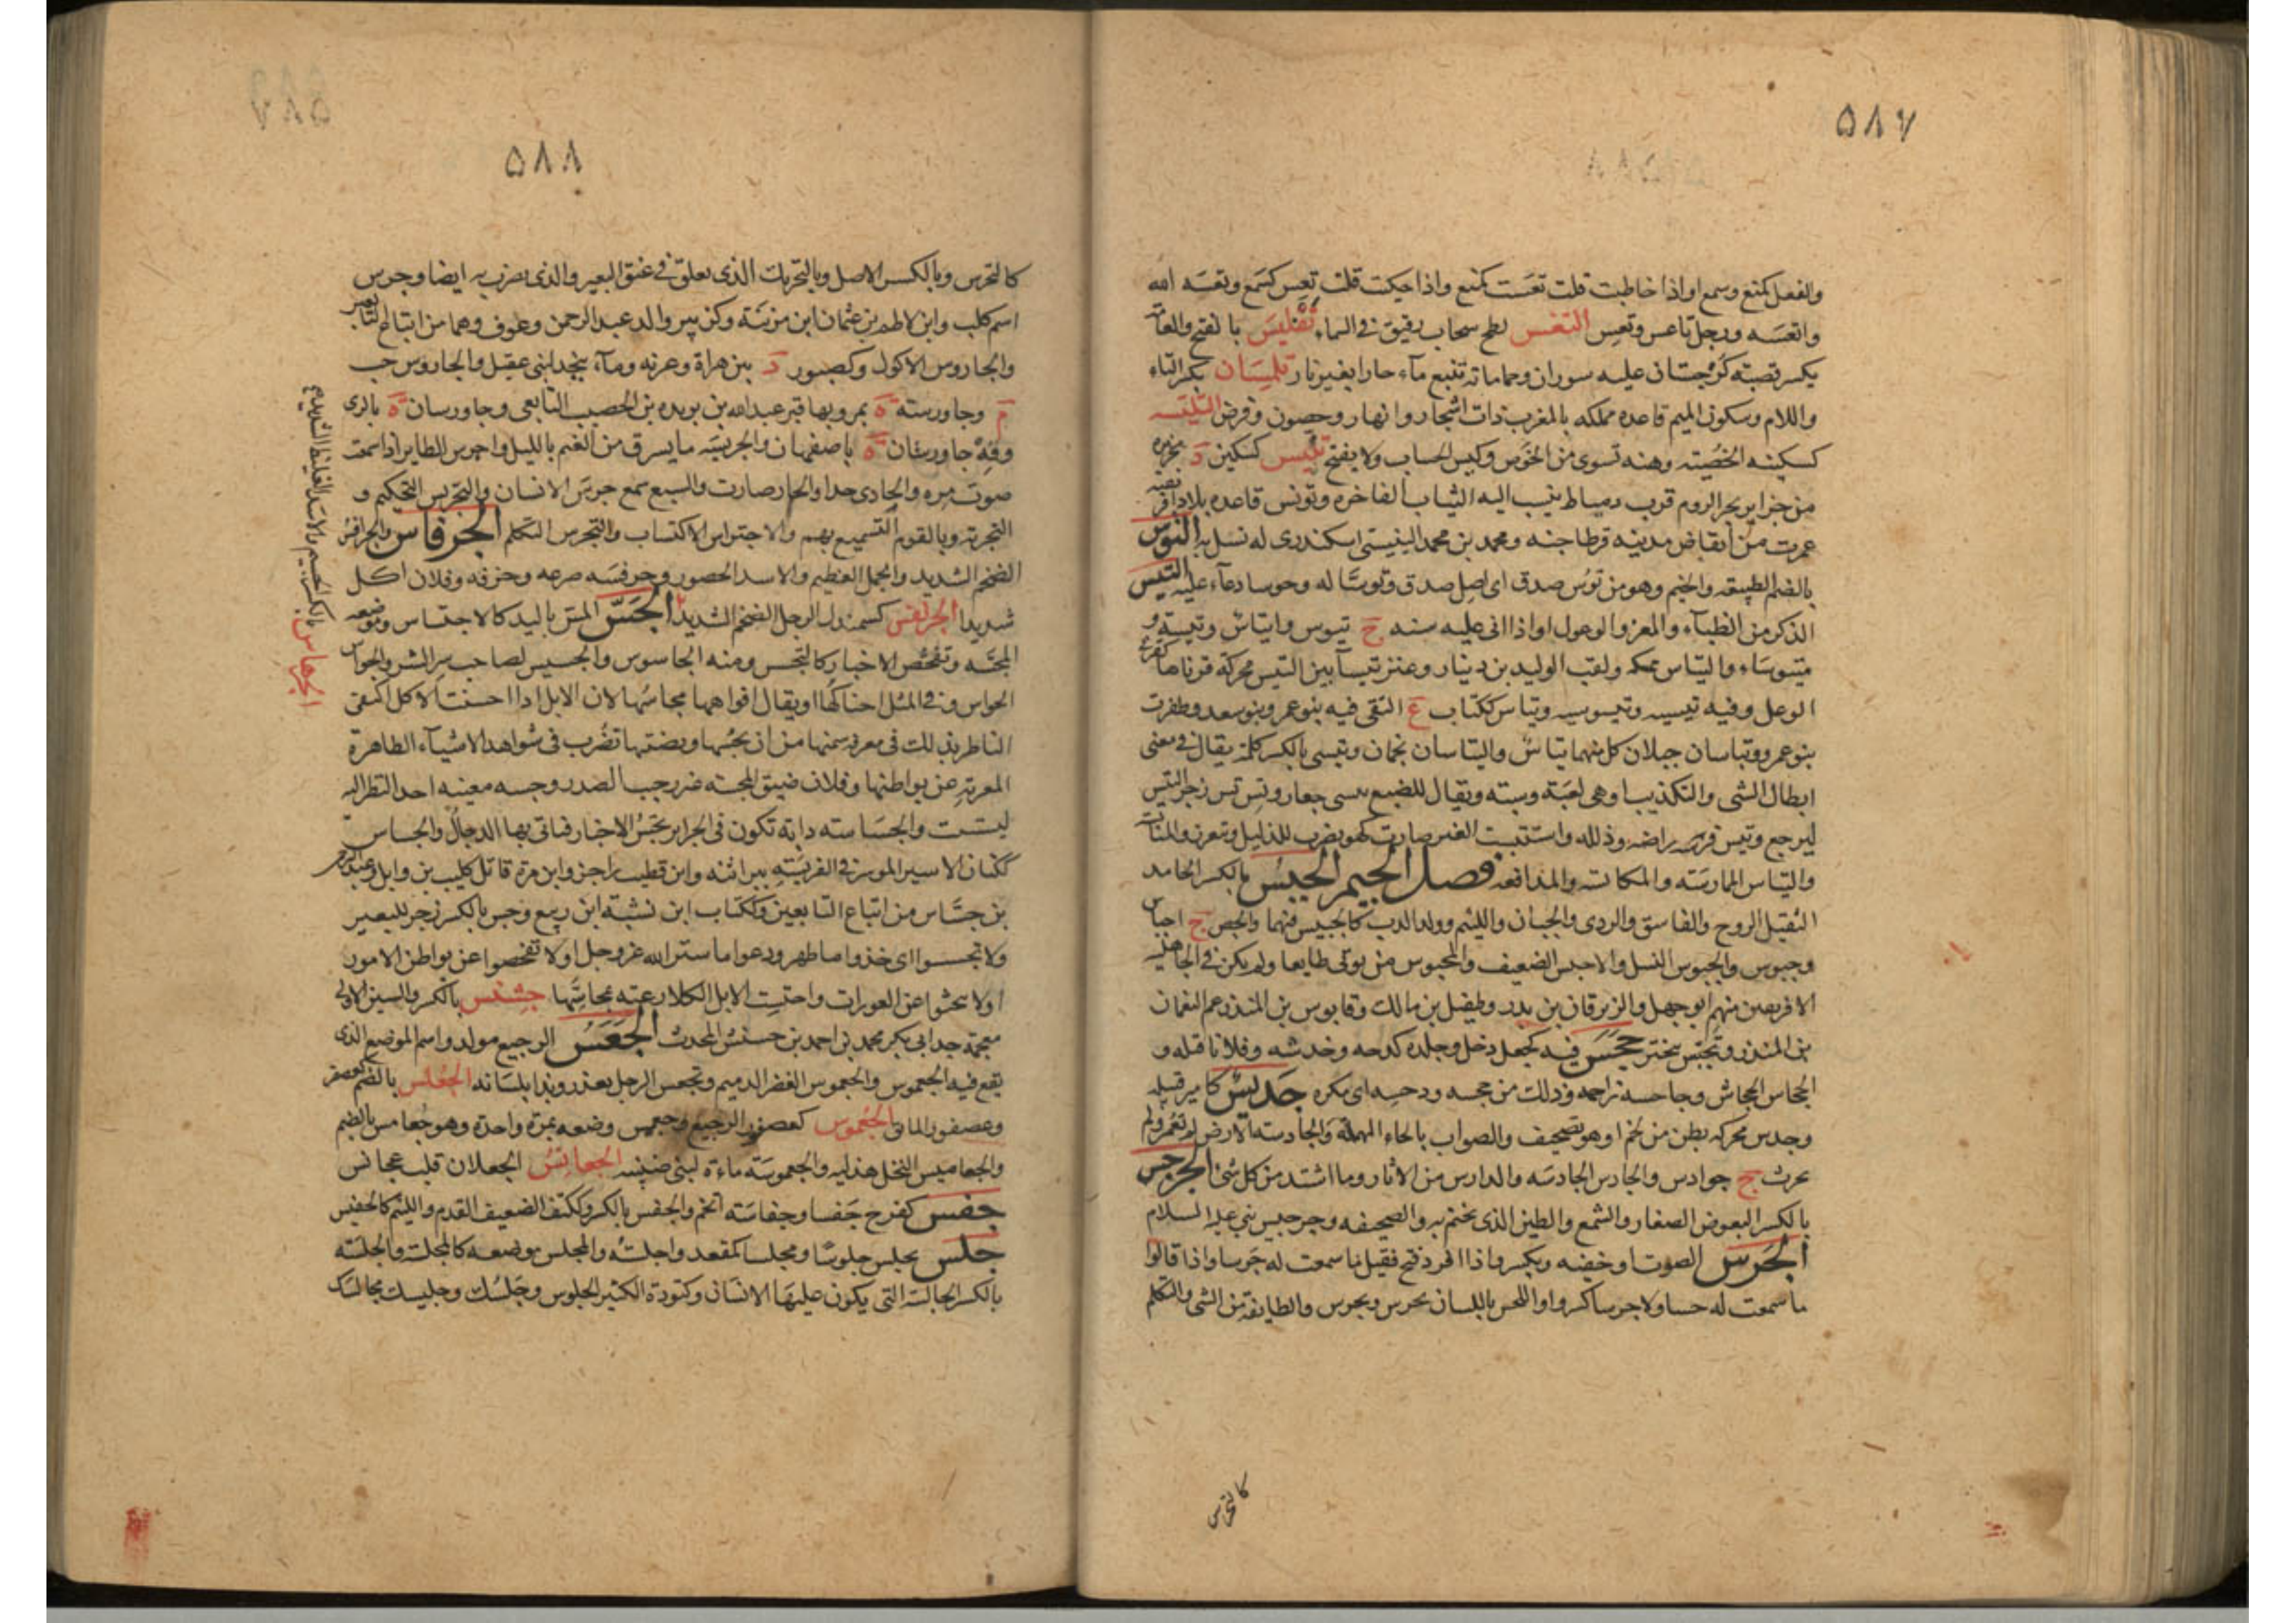 ٥٨٧
والفعل كمنع وسمع او اذا خاطبت قلت تعَست كمنع واذا حكيت قلت تعِس كسَمع وتعسَه الله
واتعَسَه ورجل تاعس وتعِس التغس لطخ سحاب رقيق في السماء تَفْليسَ بالفتح والعامة
يكسر قصبته كُرجُستان عليه سوران وحماماته تنبع مآء حارا بغير نار تِلِمْسَان بكسر التاء
واللام وسكون الميم قاعده مملكه بالمغرب ذات اشجار وانهار وحصون وفرض التلّيسه
كسكينه الخُصيته وهنه تسوى من الخوص وكيس الحساب ولا يفتح تنّيس كسكين د بجزيره
من جزاير بحر الروم قرب دمياط ينسب اليه الثياب الفاخره وتونس قاعده بلاد افريقيه
عمرت من أنقاض مدينه قرطاجنه ومحمد بن محمد التنيستى اسكندرى له نسل به التوس
بالضم الطبيعه والخيم وهو من توُس صدق اى اصل صدق وتوسًا له وجوسا دعآء عليه التيس
الذكر من الظبآء والمعز والوعول او اذا اتى عليه سنه ج تيوس واتياس وتيسة و
متيوسَاء والتيّاس ممسكه ولقب الوليد بن دينار وعنز تيسآ بين التيس محركة قرناها كقرنى
الوعل وفيه تيسيه وتيسوسيه وتياس ككتاب ع التقى فيه بنو عمر وبنو سعد وظفرت
بنو عمرو وتياسان جبلان كل منهما تياسٌ والتياسان نجمان وتيسى بالكسر كلمة يقال في معنى
ابطال الشى والتكذيب او هى لعبَة وسبته ويقال للضبع تيسى جعار وتِس تِس زجر للتيس
ليرجع وتيس فرسه راضه وذلله واستتيست العنز صارت كهو يضرب للذليل وتعزز والمتايسة
والتيّاس الممارسَته والمكايسة والمدافعه فصل الجيم الجِبْسُ بالكسر الجامد
الثقيل الروح والفاسق والردى والجبان واللئيم وولد الدب كالجبيس فيهما والجص ج اجباس
وجبوس والجبوس الفسل والاجبس الضعيف والمجبوس من يوتى طايعا ولم يكن في الجاهليه
الا فى نفر منهم ابو جهل والزبرقان بن بدر وطفيل بن مالك وقابوس بن المنذر عم النعمان
بن المنذر وتجبّس تبختر جَحَسَ فيه كجعل دخل وجلده كدحه وخدشه وفلانا قتله و
الجحاس الجحاش وجاحسه زاحمه وذلك من جحسه ودحسه اى مكره جَديسٌ كامير قبيله
وجدس محركه بطن من لخم او هو تصحيف والصواب بالحاء المهملة والجادسة الارض لم تعمر ولم
تحرث ج جوادس والجادس الجادسَه والدارس من الاثار وما اشتد من كل شئ الجرجس
بالكسر البعوض الصغار والشمع والطين الذى يختم به والصحيفه وجرجيس نبى عليه السلام
الجَرس الصوت او خفيه ويكسر واذا افرد فتح فقيل ما سمعت له جَرسا واذا قالوا
ما سمعت له حسا ولا جرسا كسروا واللحس باللسان يجرس ويجرس والطايفة من الشى والتكلم
كالتجرس
٥٨٨
كالتجرس وبالكسر الاصل وبالتحريك الذى يعلق في عنق البعير والذى يضرب به ايضا وجرس
اسم كلب وابن لاطم بن عثمان ابن مزينَة وكزبير والد عبد الرحمن وعوف وهما من اتباع التابعين
والجاروس الاكول وكصبور د بين هراة وغزنه ومآء بنجد لبنى عقيل والجاروس حب
م وجاورسه ة بمرو بها قبر عبد الله بن بريده بن الحصيب التابعى وجاورسان ة بالرى
وفِهْ جاورسان ة باصفهان والجريسَه ما يسرق من الغنم بالليل واجرس الطاير اذا سمعت
صوت مره والحادى حدا والحلى صارت والسبع سمع جرسَ الانسان والتجريس التحكيم و
التجربة وبالقوم التسميع بهم والاجتراس الاكتساب والتجرس التكلم الجرفاس والجرافس
الضخم الشديد والجمل العظيم والاسد الهصور وجرفسَه صرعه وجرفه وفلان اكل
شديدا الجرنفس كسمندل الرجل الضخم الشديد الجَسّ المس باليد كالاجتساس وموضعه
المجسَّه وتفحُّص الاخبار كالتجسس ومنه الجاسوس والجسيس لصاحب سر الشر والجواس
الحواس وفي المثل احناكها او يقال افواهها مجاسُّها لان الابل اذا احسنت الاكل اكتفى
الناظر بذلك فى معرفة سمنها من ان يجسُّها ويضبثها تضرب فى شواهد الاشيآء الظاهرة
المعربة عن بواطنها وفلان ضيق المجسه غير رحيب الصدر وجسه بعينه احد النظر اليه
ليستثبت والجسَّاسته دابة تكون فى الجزاير تجسّ الاخبار فياتى بها الدجالُ والجساس
ككتان الاسير الموثر في الفريسَته ببراثنه وابن قطيب راجز وابن مرة قاتل كليب بن وايل وعبد الرحمن
بن جسّاس من اتباع التابعين وككتاب ابن نشبة ابن ربيع وجس بالكسر زجر للبعير
ولا تجسسوا اى خذوا ما ظهر ودعوا ما ستر الله عز وجل او لا تفحصوا عن بواطن الامور
او لا تبحثوا عن العورات واجتست الابل الكلا رعته بمجاسّها جِشنس بالكسر والسين الاولى
معجمة جد ابى بكر محمد بن احمد بن جشنس المحدث الجَعَسُ الرجيع مولد واسم الموضع الذى
يقع فيه الجعموس والجعسوس القصير الدميم وتجعس الرجل تعذر وبذا بلسانه الجعلس بالضم كعصفر
وعصفور المايق الجعموس كعصفور الرجيع وجعمس وضعه بمرة واحدة وهو جُعامس بالضم
والجعاميس النخل هذليه والجعموسَة ماءة لبنى ضبينه الجعانِسُ الجعلان قلب عجانس
جفس كفرح جَفسا وجفاسَته اتخم والجفس بالكسر وككتف الضعيف الفدم واللئيم كالجفيس
جلس يجلس جلوسًا ومجلسا كمقعد واجلسه والمجلس موضعه كالمجلسة والجلسَة
بالكسر الحالسة التى يكون عليها الانسان وكتودة الكثير الجلوس وجلسُك وجليسك مجالسُك
الجرهاس بالكسر الجسيم والاسد الغليظ الشديد